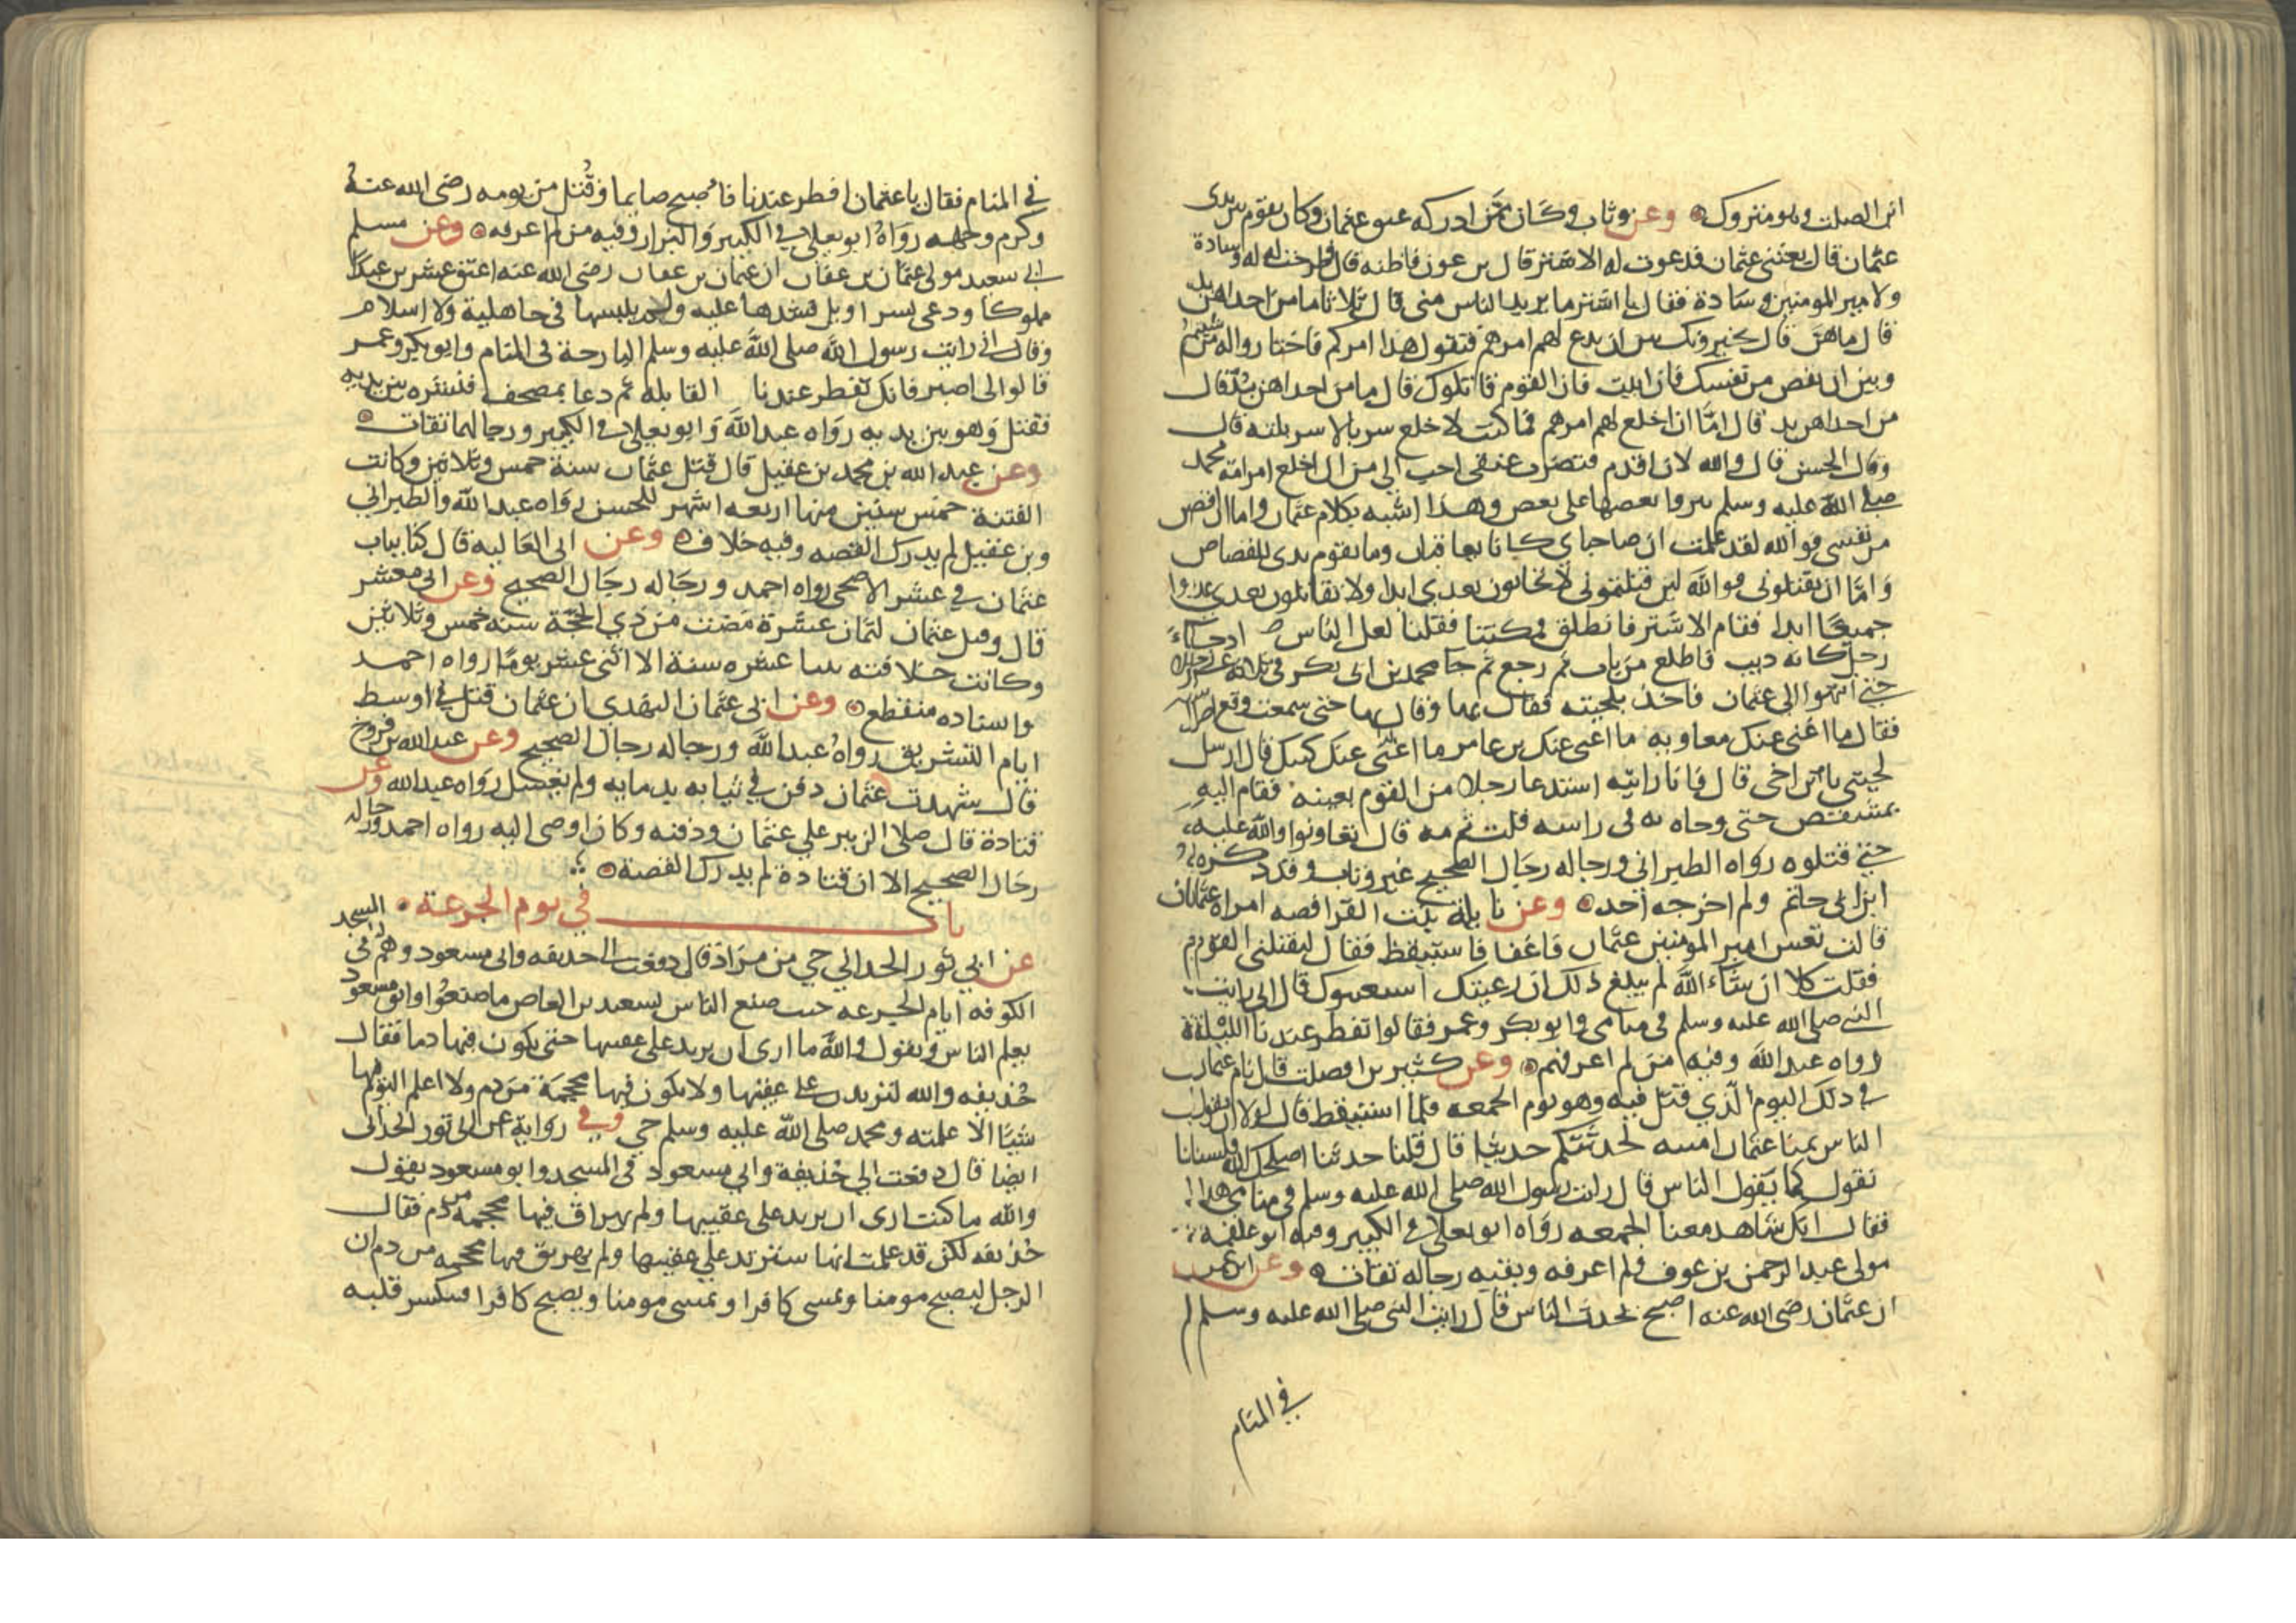 ابن الصلت وهو متروك وعن وثاب وكان ممن ادركه عتق عثمان وكان يقوم بين يدي
عثمان قال بعثني عثمان فدعوت له الاشتر قال بن عون فاظنه قال فطرحت له وسادة
ولامير المومنين وسادة فقال يا اشتر ما يريد الناس مني قال ثلاثا ما من احداهن بد
قال ما هن قال يخيرونك بين ان تدع لهم امرهم فتقول هذا امركم فاختاروا له من شيتم
وبين ان تقص من نفسك فان ابيت فان القوم قاتلوك قال ما من احداهن بد قال
من احداهن بد قال اما ان اخلع لهم امرهم فما كنت لاخلع سربالا سربلته قال
وقال الحسن قال والله لان اقدم فتضرب عنقي احب الي من ان اخلع امر امة محمد
صلى الله عليه وسلم بعضها على بعض وهذا اشبه بكلام عثمان واما ان اقص
من نفسي فوالله لقد علمت ان صاحباي كانا يعاقبان وما يقوم بدني للقصاص
واما ان يقتلوني فوالله لين قتلتموني لا تحابون بعدي ابدا ولا تقاتلون بعدي عدوا
جميعا ابدا فقام الاشتر فانطلق فمكثنا فقلنا لعل الناس اذ جاء
رجل كانه ذيب فاطلع من باب ثم رجع ثم جا محمد بن ابي بكر في ثلاثة عشر رجلا
حتى انتهوا الى عثمان فاخذ بلحيته فقال بها وقال بها حتى سمعت وقع اضراسه
فقال ما اغنى عنك معاوية ما اغنى عنك بن عامر ما اغنى عنك كتبك قال ارسل
لحيتي يا بن اخي قال فانا رايته استدعا رجلا من القوم بعينه فقام اليه
بمشقص حتى وجاه به في راسه قلت ثم مه قال تعاونوا والله عليه
حتى قتلوه رواه الطبراني ورجاله رجال الصحيح غير وثاب وقد ذكره
ابن ابي حاتم ولم يجرحه احد وعن نايلة بنت القرافصه امراة عثمان
قالت نعس امير المومنين عثمان فاغفا فاستيقظ فقال ليقتلني القوم
فقلت كلا ان شاء الله لم يبلغ ذلك ان رعيتك استعتبوك قال اني رايت
النبي صلى الله عليه وسلم في منامي وابو بكر وعمر فقالوا تفطر عندنا الليلة
رواه عبد الله وفيه من لم اعرفهم وعن كثير بن الصلت قال نام عثمان
في ذلك اليوم الذي قتل فيه وهو يوم الجمعه فلما استيقظ قال لولا ان يقول
الناس تمنا عثمان امنيه لحدثتكم حديثا قال قلنا حدثنا اصلحك الله فلسنا
نقول كما يقول الناس قال رايت رسول الله صلى الله عليه وسلم في منامي هذا
فقال انك شاهد معنا الجمعه رواه ابو يعلى في الكبير وفيه ابو علقمه
مولى عبد الرحمن بن عوف ولم اعرفه وبقيه رجاله ثقات وعن ابن عمر
ان عثمان رضى الله عنه اصبح يحدث الناس قال رايت النبي صلى الله عليه وسلم
في المنام
في المنام فقال يا عثمان افطر عندنا فاصبح صايما وقتل من يومه رضى الله عنه
وكرم وجهه رواه ابو يعلى في الكبير والبزار وفيه من لم اعرفه وعن مسلم
ابي سعيد مولى عثمان بن عفان ان عثمان بن عفان رضى الله عنه اعتق عشرين عبدا
مملوكا ودعى بسراويل فشدها عليه ولم يلبسها في جاهلية ولا اسلام
وقال اني رايت رسول الله صلى الله عليه وسلم البارحة في المنام وابو بكر وعمر
قالوا لي اصبر فانك تفطر عندنا القابله ثم دعا بمصحف فنشره بين يديه
فقتل وهو بين يديه رواه عبد الله وابو يعلى في الكبير ورجالهما ثقات
وعن عبد الله بن محمد بن عقيل قال قتل عثمان سنة خمس وثلاثين وكانت
الفتنة خمس سنين منها اربعه اشهر للحسن رواه عبد الله والطبراني
وبن عقيل لم يدرك القصه وفيه خلاف وعن ابي العاليه قال كنا بباب
عثمان في عشر الاضحى رواه احمد ورجاله رجال الصحيح وعن ابي معشر
قال وقتل عثمان لثمان عشرة مضت من ذي الحجة سنه خمس وثلاثين
وكانت خلافته عشره سنة الا اثني عشر يوما رواه احمد
واسناده منقطع وعن ابي عثمان النهدي ان عثمان قتل في اوسط
ايام التشريق رواه عبد الله ورجاله رجال الصحيح وعن عبد الله بن فروخ
قال شهدت عثمان دفن في ثيابه بدمايه ولم يغسل رواه عبد الله وعن
قتادة قال صلا الزبير علي عثمان ودفنه وكان اوصى اليه رواه احمد ورجاله
رجال الصحيح الا ان قتادة لم يدرك القصة
باب في يوم الجرعة
عن ابي ثور الحداني حي من مراد قال دفعت الى حذيفه وابى مسعود وهم في المسجد
الكوفه ايام الجرعه حيث صنع الناس بسعيد بن العاص ما صنعوا وابو مسعود
يعلم الناس ويقول والله ما ارى ان يرتد على عقبيها حتى يكون فيها دما فقال
حذيفه والله لترتدن على عقبيها ولا يكون فيها محجمة من دم ولا اعلم اليوم فيها
شيا الا علمته ومحمد صلى الله عليه وسلم حي وفي رواية عن ابي ثور الحداني
ايضا قال دفعت الى حذيفة وابي مسعود في المسجد وابو مسعود يقول
والله ما كنت ارى ان يرتد على عقبيها ولم يهراق فيها محجمه من دم فقال
حذيفه لكنى قد علمت انها سترتد على عقبيها ولم يهريق فيها محجمه من دم ان
الرجل ليصبح مومنا ويمسى كافرا ويمسى مومنا ويصبح كافرا قلبه